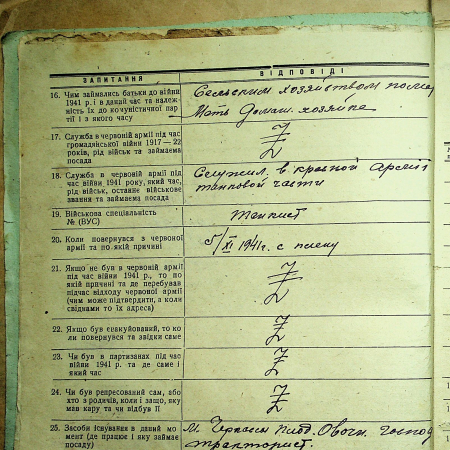 ЗАПИТАННЯ
ВІДПОВІДІ
16. Чим займались батьки до війни
1941 р. і в даний час та належ-
ність їх до комуністичної пар-
тії і з якого часу
Сельским хозяйством
Мать домаш. хозяйка
17. Служба в червоній армії під час
громадянської війни 1917—22
років, рід військ та займаєма
посада
Z
18. Служба в червоній армії під
час війни 1941 року, який час,
рід військ, останнє військове
звання та займаєма посада
Служил в красной армии
танковой части
19. Військова спеціальність
№ (ВУС)
Танкист
20. Коли повернувся з червоної
армії та по якій причині
5/XI 1941г. с плену
21. Якщо не був в червоній армії
під час війни 1941 р., то по
якій причині та де перебував
під час відходу червоної армії
(чим може підтвердити, а коли
свідками то їх адреса)
Z
22. Якщо був евакуйований, то ко
ли повернувся та звідки саме
Z
23. Чи був в партизанах під час
війни 1941 р. та де саме і
який час
Z
24. Чи був репресований сам, або
хто з родичів, коли і защо, яку
мав кару та чи відбув її
Z
25. Засоби існування в даний мо
мент (де працює і яку займає
посаду)
м. Черкассы Плод. Овочн. господ
тракторист.